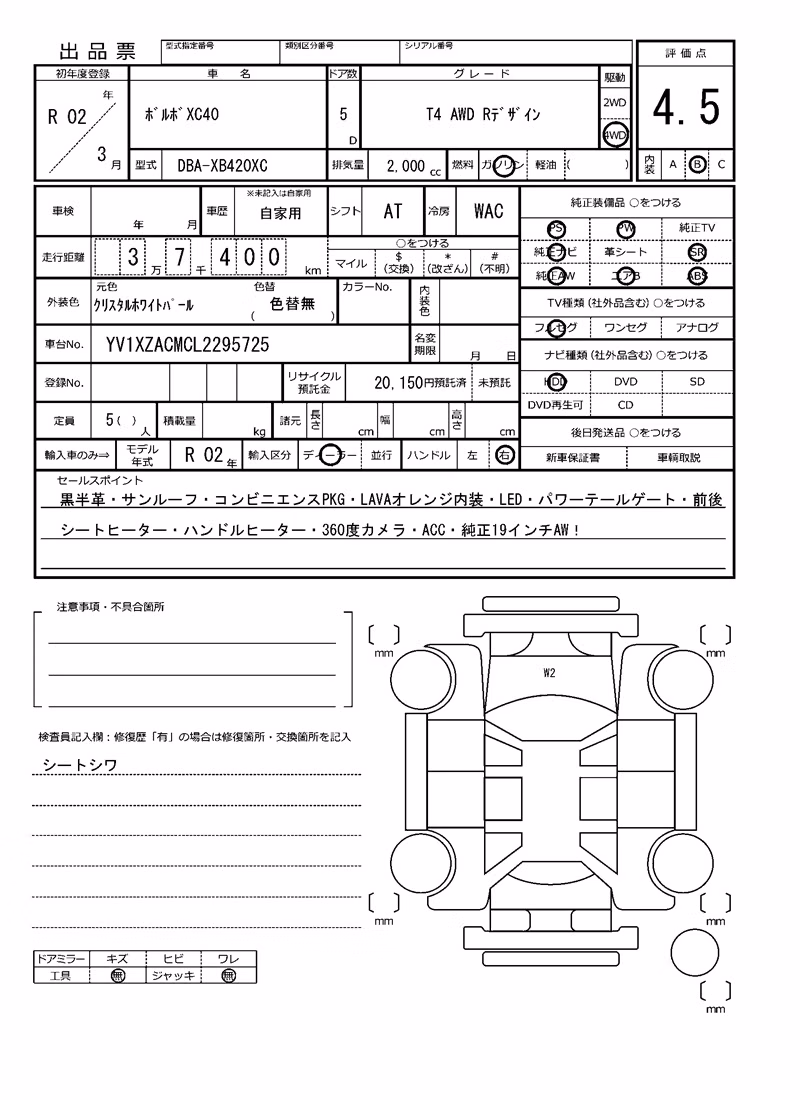 出品票
型式指定番号 類別区分番号 シリアル番号
評価点
初年度登録 車名 ドア数 グレード 駆動
R 02 年 ボルボXC40 5 D T4 AWD Rデザイン 2WD 4.5
3 月 4WD
型式 DBA-XB420XC 排気量 2,000 cc 燃料 ガソリン 軽油 ( ) 内装 A B C
車検 年 月 車歴 ※未記入は自家用 自家用 シフト AT 冷房 WAC
純正装備品 ○をつける
PS PW 純正TV
走行距離 3 万 7 千 4 0 0 km ○をつける
マイル $(交換) *(改ざん) #(不明)
純正ナビ 革シート SR
純正AW エアB ABS
外装色 元色 クリスタルホワイトパール 色替 ( 色替無 ) カラーNo. 内装色
TV種類(社外品含む)○をつける
フルセグ ワンセグ アナログ
車台No. YV1XZACMCL2295725 名変期限 月 日
ナビ種類(社外品含む)○をつける
登録No. リサイクル預託金 20,150円預託済 未預託
HDD DVD SD
DVD再生可 CD
定員 5( ) 人 積載量 kg 諸元 長さ cm 幅 cm 高さ cm
後日発送品 ○をつける
輸入車のみ⇒ モデル年式 R 02 年 輸入区分 ディーラー 並行 ハンドル 左 右
新車保証書 車輌取説
セールスポイント
黒半革・サンルーフ・コンビニエンスPKG・LAVAオレンジ内装・LED・パワーテールゲート・前後
シートヒーター・ハンドルヒーター・360度カメラ・ACC・純正19インチAW!
注意事項・不具合箇所
mm mm
W2
検査員記入欄:修復歴「有」の場合は修復箇所・交換箇所を記入
シートシワ
mm mm
ドアミラー キズ ヒビ ワレ
工具 無 ジャッキ 無
mm